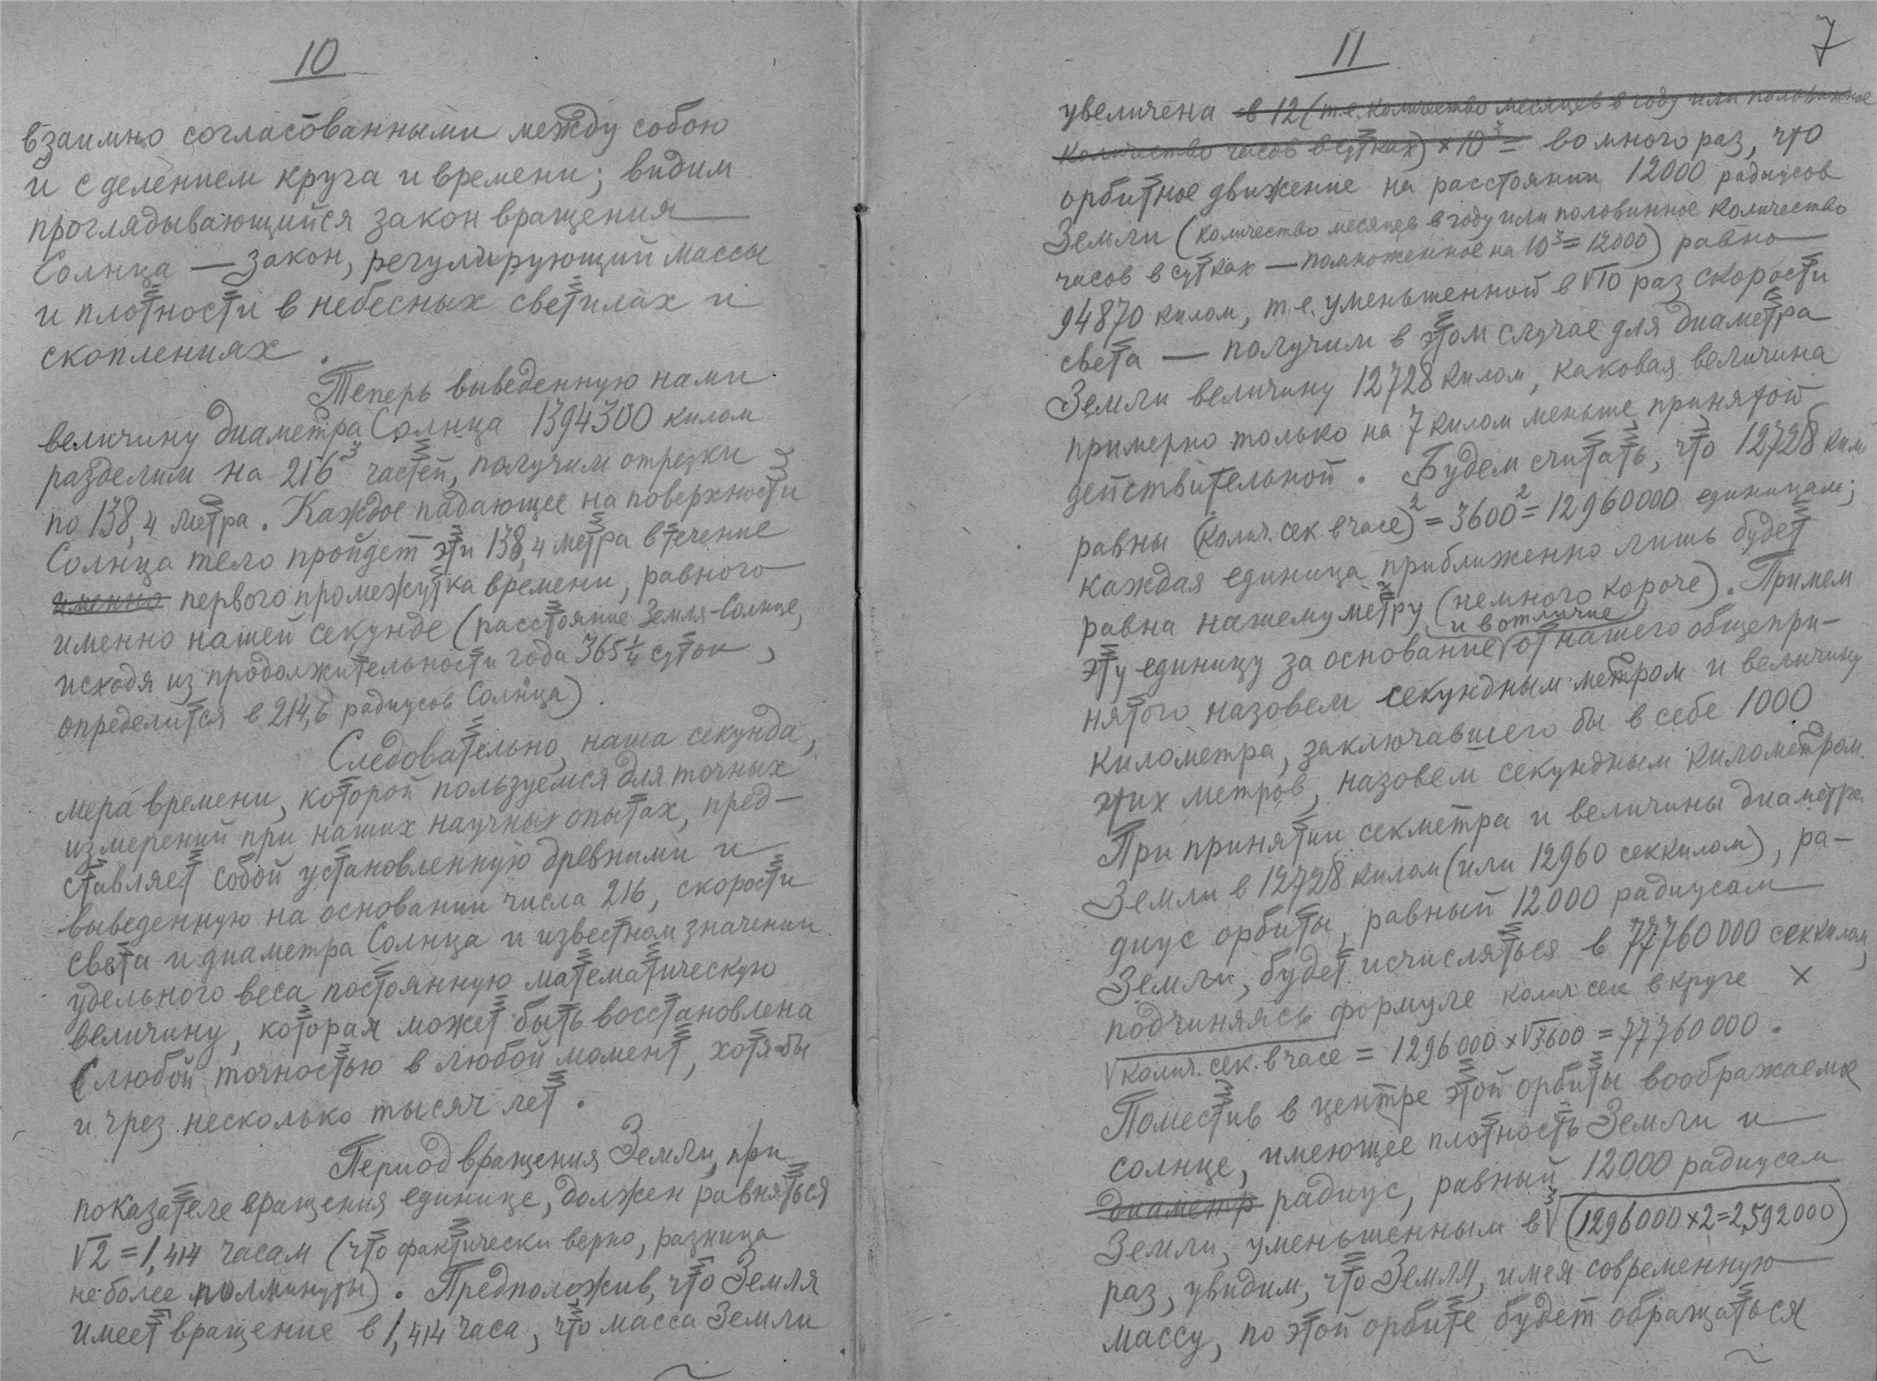 10
взаимно согласованными между собою
и с делением круга и времени; видим
проглядывающийся закон вращения
Солнца — закон, регулирующий массы
и плотности в небесных светилах и
скоплениях.
Теперь выведенную нами
величину диаметра Солнца 1394300 килом
разделим на 216³ частей, получим отрезки
по 138,4 метра. Каждое падающее на поверхности
Солнца тело пройдет эти 138,4 метра в течение
именно первого промежутка времени, равного
именно нашей секунде (расстояние Земля-Солнце,
исходя из продолжительности года 365¼ суток,
определится в 214,6 радиусов Солнца).
Следовательно, наша секунда,
мера времени, которой пользуемся для точных
измерений при наших научных опытах, пред-
ставляет собой установленную древними и
выведенную на основании числа 216, скорости
света и диаметра Солнца и известном значении
удельного веса постоянную математическую
величину, которая может быть восстановлена
с любой точностью в любой момент, хотя-бы
и чрез несколько тысяч лет.
Период вращения Земли, при
показателе вращения единице, должен равняться
√2 = 1,414 часам (что фактически верно, разница
не более полминуты). Предположив, что Земля
имеет вращение в 1,414 часа, что масса Земли
11
7
увеличена в 12 (т.е. количество месяцев в году или половинное
количество часов в сутках) × 10³ = во много раз, что
орбитное движение на расстоянии 12000 радиусов
Земли (количество месяцев в году или половинное количество
часов в сутках — помноженное на 10³ = 12000) равно
94870 килом, т.е. уменьшенной в √10 раз скорости
света — получим в этом случае для диаметра
Земли величину 12728 килом, каковая величина
примерно только на 7 килом меньше принятой
действительной. Будем считать, что 12728 килом
равны (колич. сек в часе)² = 3600² = 12960000 единицам;
каждая единица приближенно лишь будет
равна нашему метру (немного короче). Примем
и в отличие
эту единицу за основание от нашего общепри-
нятого назовем секундным метром и величину
километра, заключавшего бы в себе 1000
этих метров, назовем секундным километром.
При принятии секметра и величины диаметра
Земли в 12728 килом (или 12960 секкилом), ра-
диус орбиты, равный 12000 радиусам
Земли, будет исчисляться в 77760000 секкилом,
подчиняясь формуле колич сек в круге ×
√колич. сек. в часе = 1296000 × √3600 = 77760000.
Поместив в центре этой орбиты воображаемое
солнце, имеющее плотность Земли и
диаметр радиус, равный 12000 радиусам
Земли, уменьшенным в √(1296000×2=2592000)
раз, увидим, что Земля, имея современную
массу, по этой орбите будет обращаться